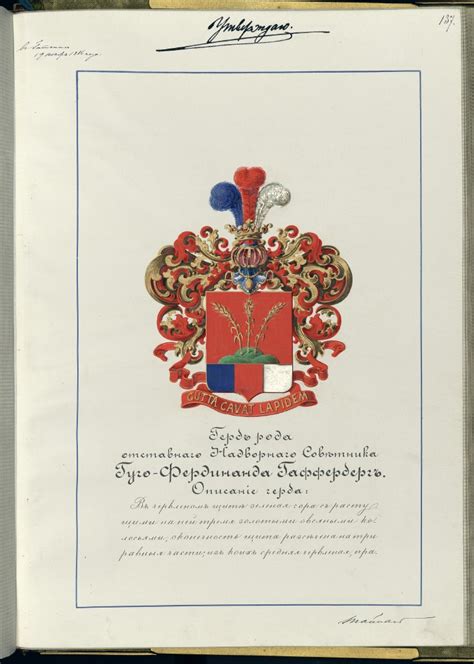 137.
Утверждаю.
GUTTA CAVAT LAPIDEM
Гербъ рода
отставнаго Надворнаго Совѣтника
Гуго-Фердинанда Гаффербергъ.
Описаніе герба:
Въ червленомъ щитѣ зеленая гора съ расту-
щими на ней тремя золотыми овсяными ко-
лосьями; оконечность щита разсѣчена на три
равныя части; изъ коихъ средняя червленая, пра-